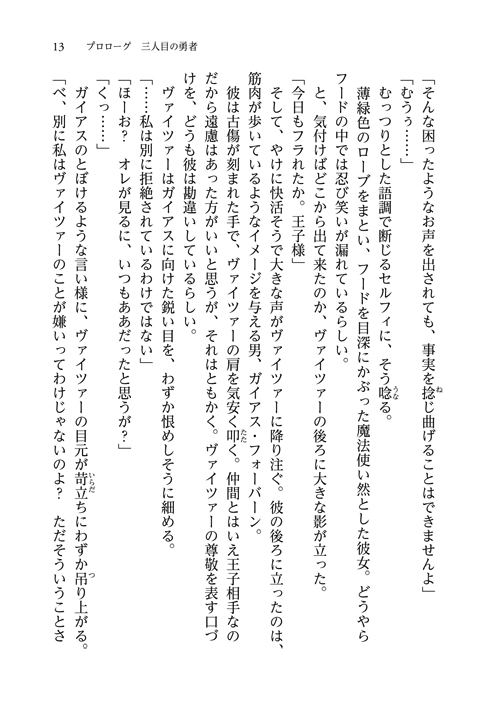 13　プロローグ　三人目の勇者
「そんな困ったようなお声を出されても、事実を捻じ曲げることはできませんよ」
「むうぅ……」
むっつりとした語調で断じるセルフィに、そう唸る。
薄緑色のローブをまとい、フードを目深にかぶった魔法使い然とした彼女。どうやら
フードの中では忍び笑いが漏れているらしい。
と、気付けばどこから出て来たのか、ヴァイツァーの後ろに大きな影が立った。
「今日もフラれたか。王子様」
そして、やけに快活そうで大きな声がヴァイツァーに降り注ぐ。彼の後ろに立ったのは、
筋肉が歩いているようなイメージを与える男、ガイアス・フォーバーン。
彼は古傷が刻まれた手で、ヴァイツァーの肩を気安く叩く。仲間とはいえ王子相手なの
だから遠慮はあった方がいいと思うが、それはともかく。ヴァイツァーの尊敬を表す口づ
けを、どうも彼は勘違いしているらしい。
ヴァイツァーはガイアスに向けた鋭い目を、わずか恨めしそうに細める。
「……私は別に拒絶されているわけではない」
「ほーお？　オレが見るに、いつもああだったと思うが？」
「くっ……」
ガイアスのとぼけるような言い様に、ヴァイツァーの目元が苛立ちにわずか吊り上がる。
「べ、別に私はヴァイツァーのことが嫌いってわけじゃないのよ？　ただそういうことさ